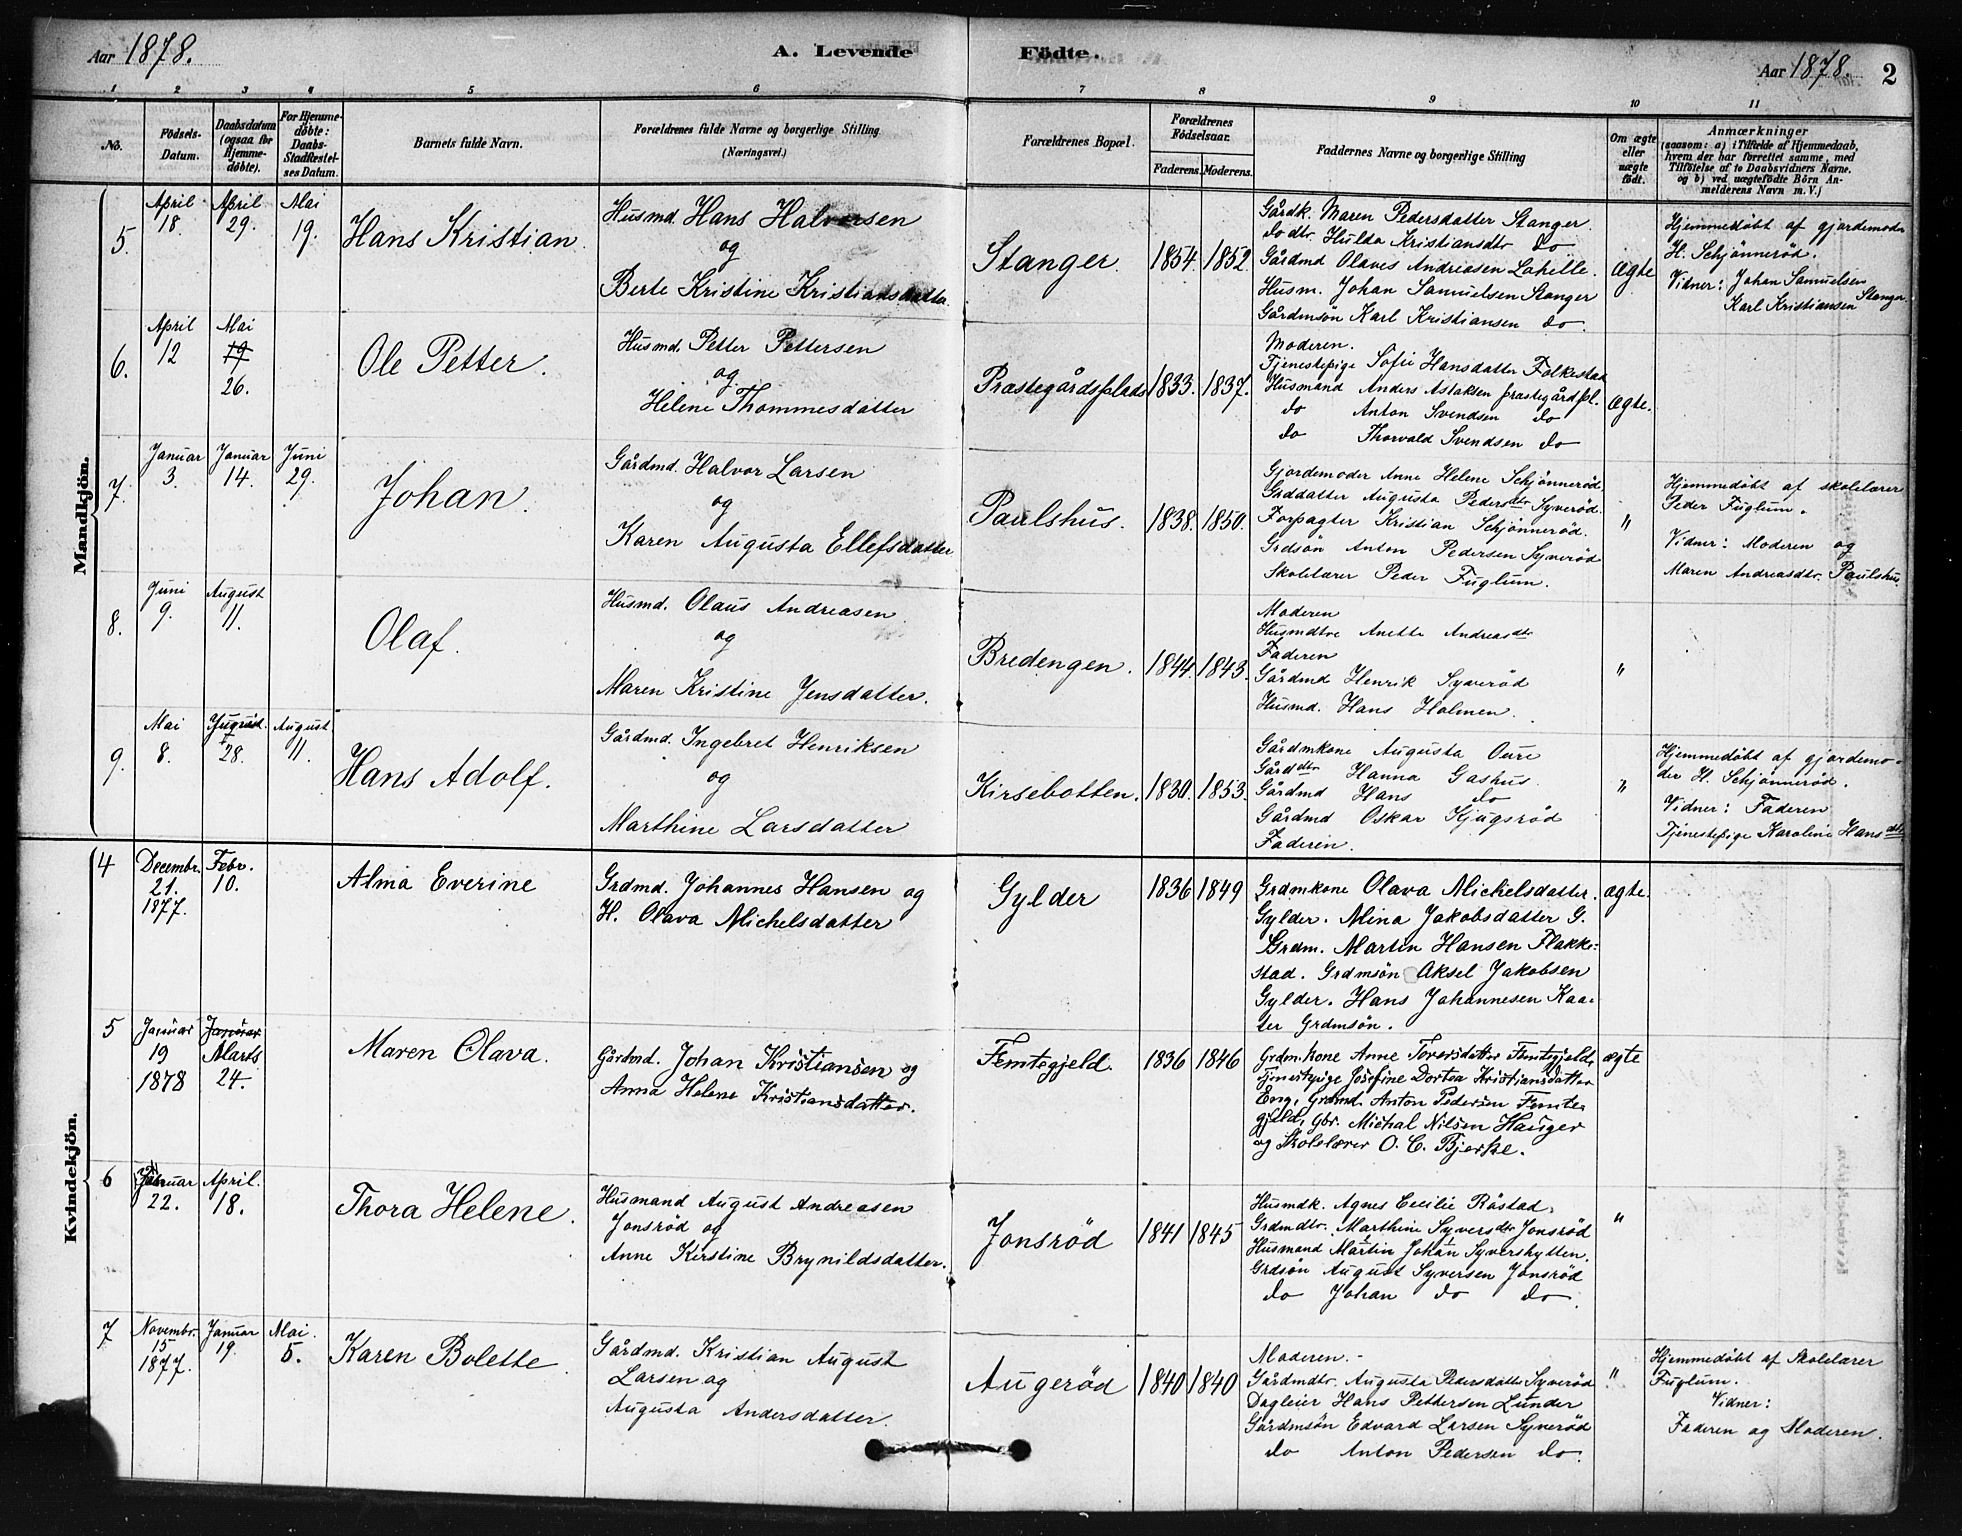 Aar 1878.
A. Levende Födte.
Aar 1878.
2
1 2 3 4 5 6 7 8 9 10 11
No.
Födsels-Datum.
Daabsdatum (ogsaa for Hjemme-døbte).
For Hjemme-døbte: Daabs-Stadfæstel-ses Datum.
Barnets fulde Navn.
Forældrenes fulde Navne og borgerlige Stilling (Næringsvei.)
Forældrenes Bopæl.
Forældrenes Fødselsaar.
Faderens. Moderens.
Faddernes Navne og borgerlige Stilling
Om ægte eller uægte født.
Anmærkninger
(saasom: a) i Tilfælde af Hjemmedaab,
hvem der har forrettet samme, med
Tilføielse af to Daabsvidners Navne.
og b) ved uægtefödte Börn An-
melderens Navn m. V.)
Mandkjön.
5.
April 18.
April 29.
Mai 19.
Hans Kristian.
Husmd. Hans Halvorsen
og
Berte Kristine Kristiansdatter.
Stanger.
1854. 1852.
Gårdk. Maren Pedersdatter Stanger.
do dtr. Hulda Kristiansdtr do
Gårdmd Olaves Andreasen Lahelle.
Husm. Johan Samuelsen Stanger
Gårdmsön Karl Kristiansen do.
Ægte
Hjemmedöbt af gjordemoder
H. Schjönneröd.
Vidner: Johan Samuelsen
Karl Kristiansen Stanger.
6.
April 12
Mai 19 26.
Ole Petter.
Husmd. Petter Pettersen
og
Helene Thommesdatter
Præstegårdsplads
1833. 1837.
Moderen.
Tjenestepige Sofie Hansdatter Folkestad
Husmand Anders Aslaksen præstegårdspl.
do Anton Svendsen do
do Thorvald Svendsen do
Ægte.
7.
Januar 3.
Januar 14.
Juni 29.
Johan.
Gårdmd. Halvor Larsen
og
Karen Augusta Ellefsdatter
Paulshus.
1838. 1850.
Gjordemoder Anne Helene Schjönneröd.
Grddatter Augusta Pedersdtr Syveröd.
Forpagter Kristian Schjönneröd.
Grdsön Anton Pedersen Syveröd
Skolelærer Peder Fuglum.
"
Hjemmedöbt af skolelærer
Peder Fuglum.
Vidner: Moderen og
Maren Andreasdtr. Paulshus.
8.
Juni 9.
August 11.
Olaf.
Husmd. Olaus Andreasen.
og
Maren Kristine Jensdatter.
Bredengen.
1844. 1843.
Moderen
Husmdtre Anette Andreasdtr
Faderen
Gårdmd Henrik Syveröd
Husmd. Hans Holmen.
"
9.
Mai 8.
28.
August 11.
Hans Adolf.
Gårdmd. Ingebret Henriksen
og
Marthine Larsdatter
Kirsebotten.
1830. 1853.
Gårdmkone Augusta Oure
Gårddtr Hanna Gashus.
Gårdmd Hans do
Gårdmd Oskar Hjugsröd
Faderen.
"
Hjemmedöbt af gjordemo-
der H. Schjönneröd.
Vidner: Faderen
Tjenestepige Karoline Hansdtr
Kvindekjön.
4
Decembr. 21. 1877.
Febr. 10.
Alma Everine
Grdmd. Johannes Hansen og
H. Olava Michelsdatter
Gylder
1836 1849
Grdmkone Olava Michelsdatter.
Gylder. Mina Jakobsdatter G.
Grdm. Martin Hansen Flakke-
stad. Grdmsön Aksel Jakobsen
Gylder. Hans Johannesen Kaa-
ter Grdmsön.
ægte.
5
Januar 19 1878
Januar Marts 24.
Maren Olava.
Gårdmd. Johan Kristiansen og
Anna Helene Kristiansdatter.
Femtegjeld.
1836 1846
Grdm.kone Anne Toversdatter Femtegjeld,
Tjenestpige Josefine Dortea Kristiansdatter
Eng, Grdmd. Anton Pedersen Femte-
gjeld, Gbr. Michal Nilsen Hauger
og Skolelærer O. C. Bjerke.
ægte
6
Januar 22.
April. 18.
Thora Helene.
Husmand August Andreasen
Jonsröd og
Anne Kirstine Brynildsdatter.
Jonsröd
1841 1845
Husmdk. Agnes Cecilie Råstad.
Grdmdtr. Marthine Syversdtr Jonsröd
Husmand Martin Johan Syvershytten.
Grdsön August Syversen Jonsröd
do Johan do do.
"
7
Novembr. 15 1877.
Januar 19.
Mai. 5.
Karen Bolette
Gårdmd. Kristian August
Larsen og
Augusta Andersdatter.
Augeröd
1840 1840
Moderen.
Gårdmdtr. Augusta Pedersdatter Syveröd
Dagleier Hans Pettersen Lunder
Gårdmsön Edvard Larsen Syveröd
do Anton Pedersen do.
"
Hjemmedöbt af Skolelærer
Fuglum.
Vidner:
Faderen og Moderen.